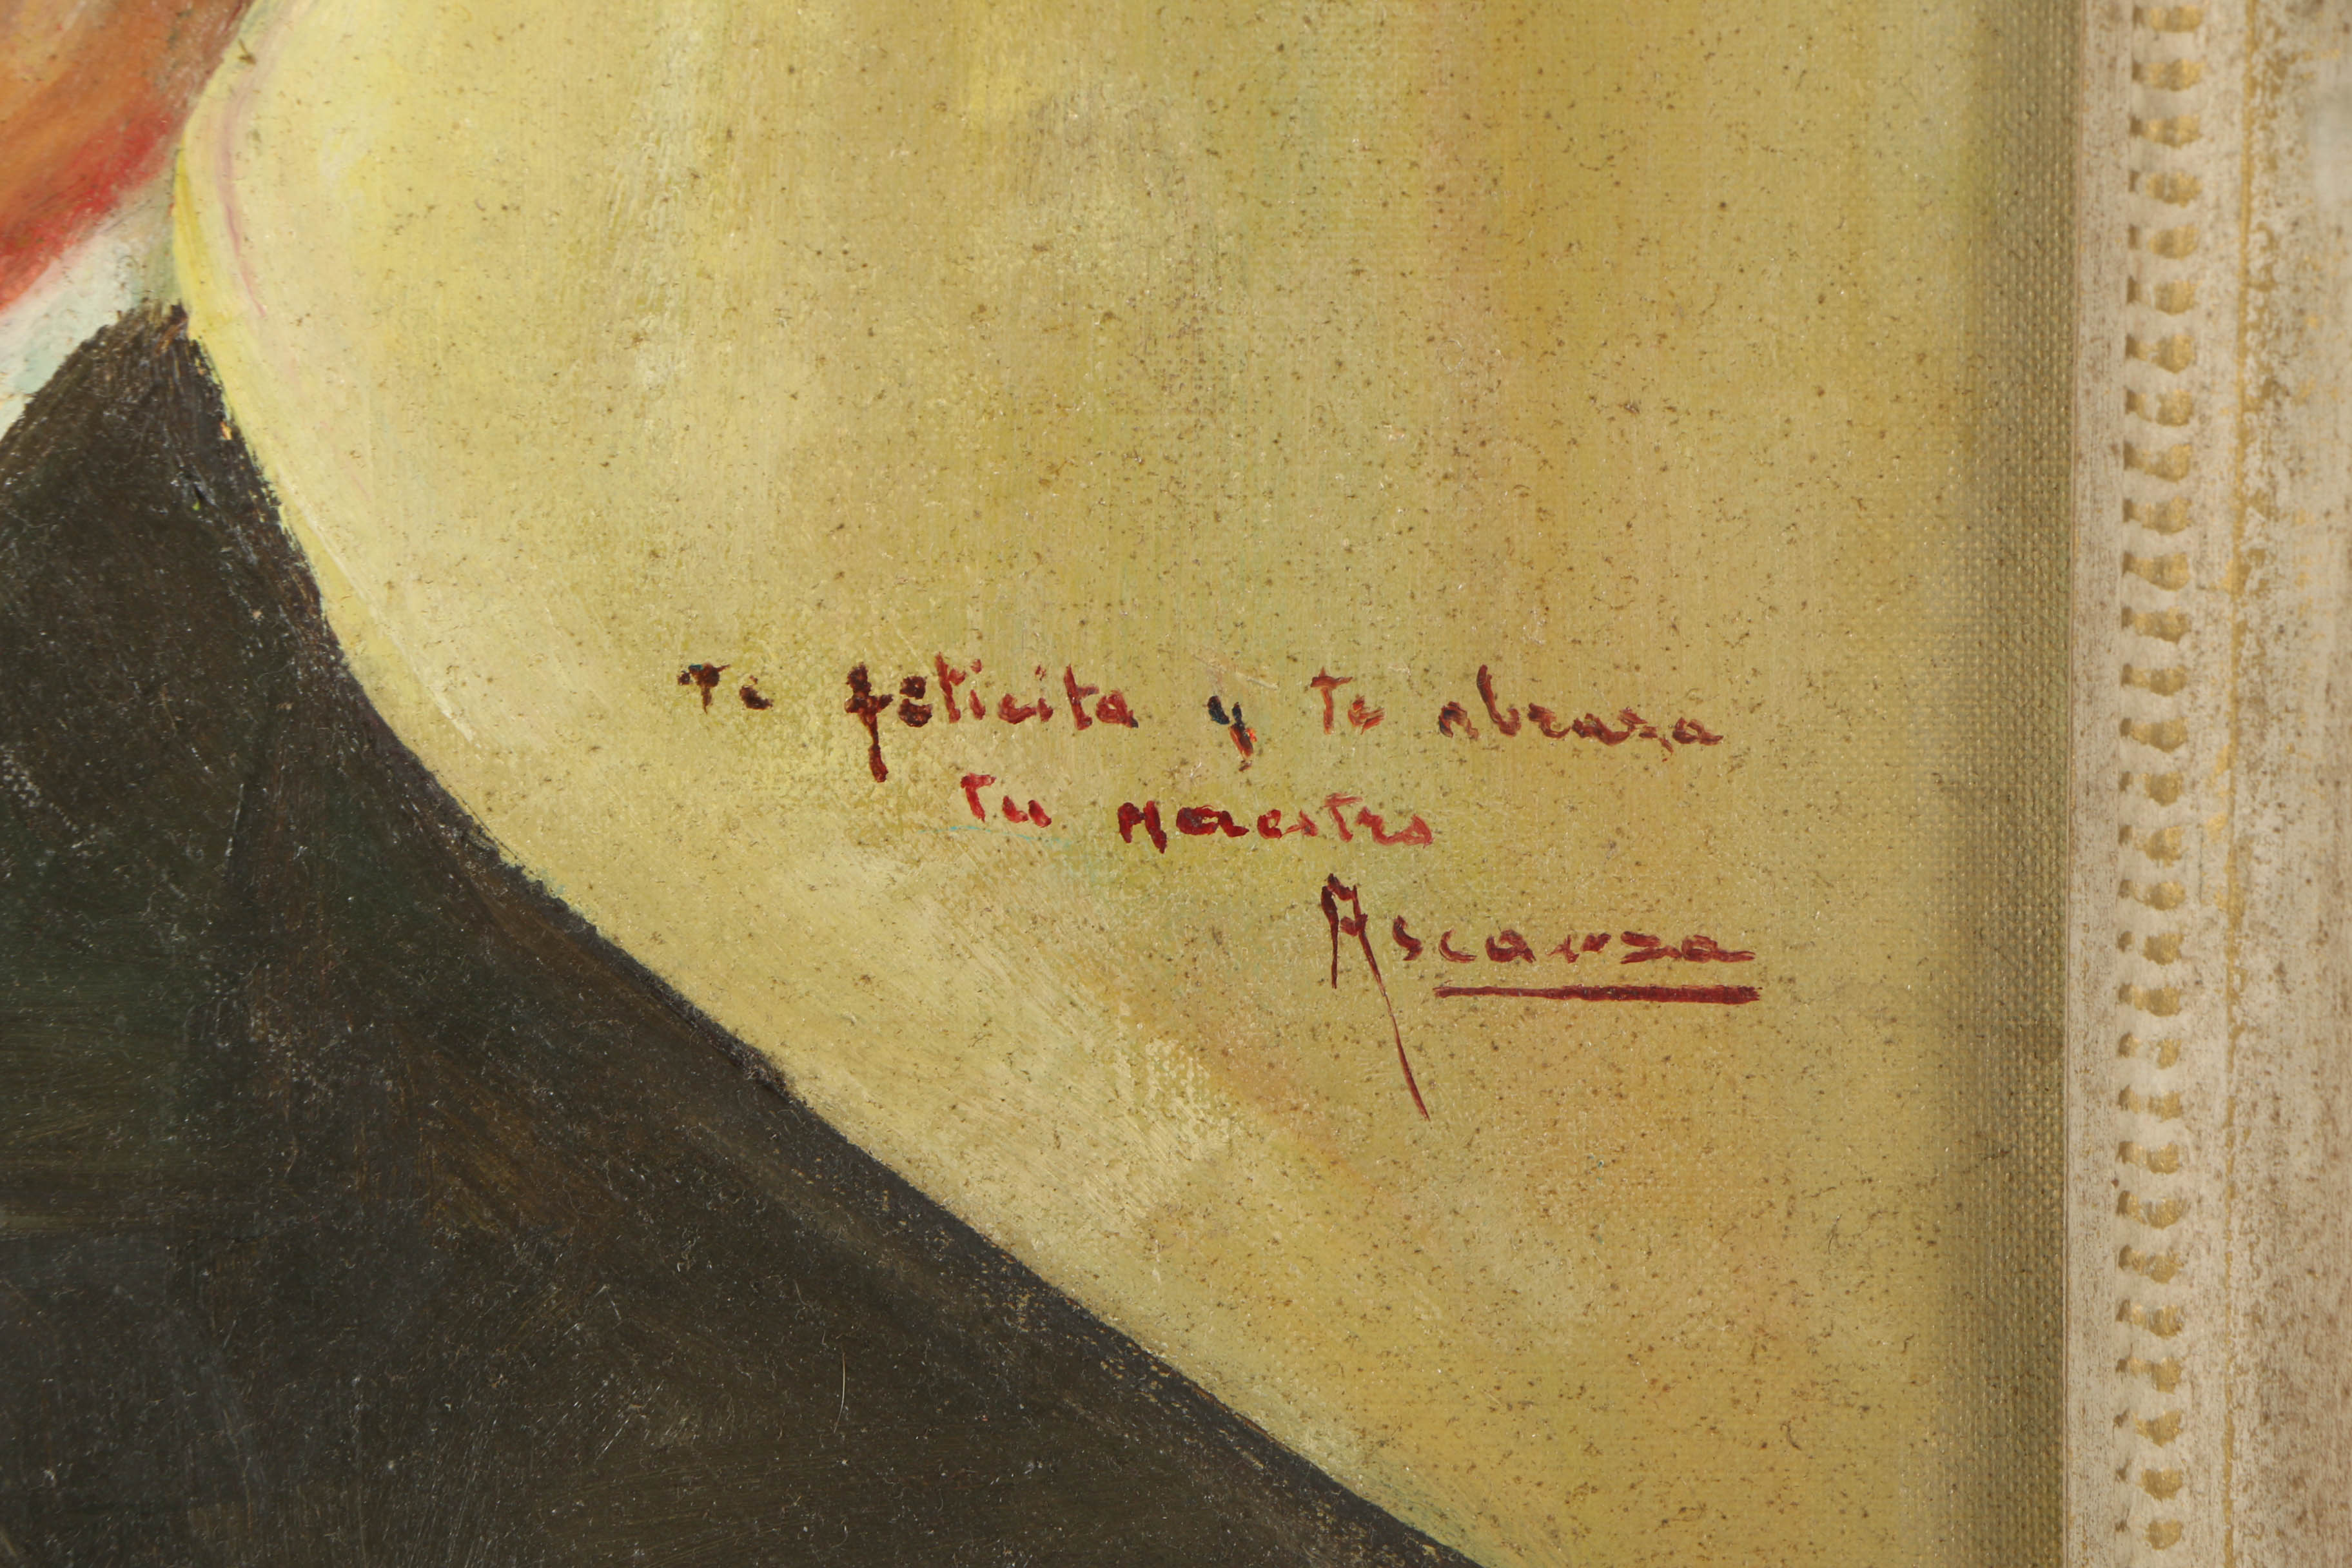 Te felicita y te abraza
Tu maestro
Ascanza